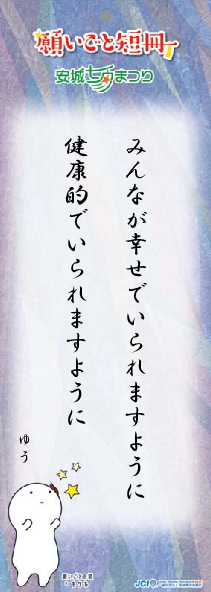 願いごと短冊
安城七夕まつり
みんなが幸せでいられますように
健康的でいられますように
ゆう
JCI